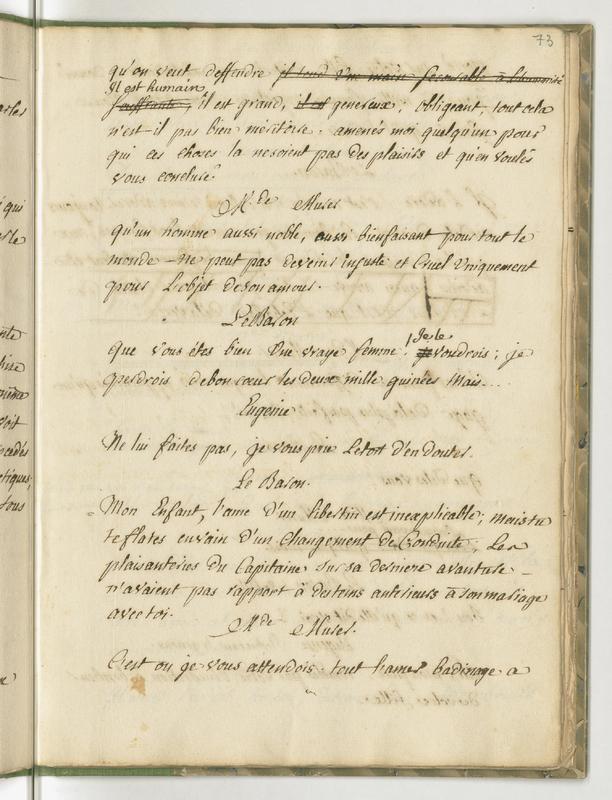 73
qu'on veut deffendre il tend une main secourable à l'humanité
Il est humain,
souffrante, il est grand, il est genereux; obligeant, tout cela
n'est-il pas bien meritoire. amenés moi quelqu'un pour
qui ces choses la ne soient pas des plaisirs et qu'en voulés
vous conclure?
M.de Murer
qu'un homme aussi noble, aussi bienfaisant pour tout le
monde ne peut pas devenir injuste et Cruel Uniquement
pour L'objet de son amour.
Le Baron
que vous étes bien Une vraye femme! Je le voudrois; je
perdrois de bon cœur les deux mille guinées Mais...
Eugénie
Ne lui faites pas, je vous prie Le tort d'en douter.
Le Baron.
Mon Enfant, l'ame d'un libertin est inexplicable; mais tu
te flates envain d'un Changement de Conduite, Les
plaisanteries du Capitaine sur sa derniere avanture
n'avaient pas rapport à des tems anterieurs à son mariage
avec toi.
M.de Murer.
C'est ou je vous attendois. tout l'amer badinage a